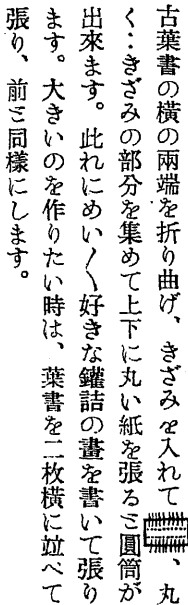 古葉書の橫の兩端を折り曲げ、きざみを入れて、丸
く‥きざみの部分を集めて上下に丸い紙を張るミ圓筒が
出來ます。此れにめい〱好きな鑵詰の畫を書いて張り
ます。大きいのを作りたい時は、葉書を二枚橫に竝べて
張り、前ミ同樣にします。